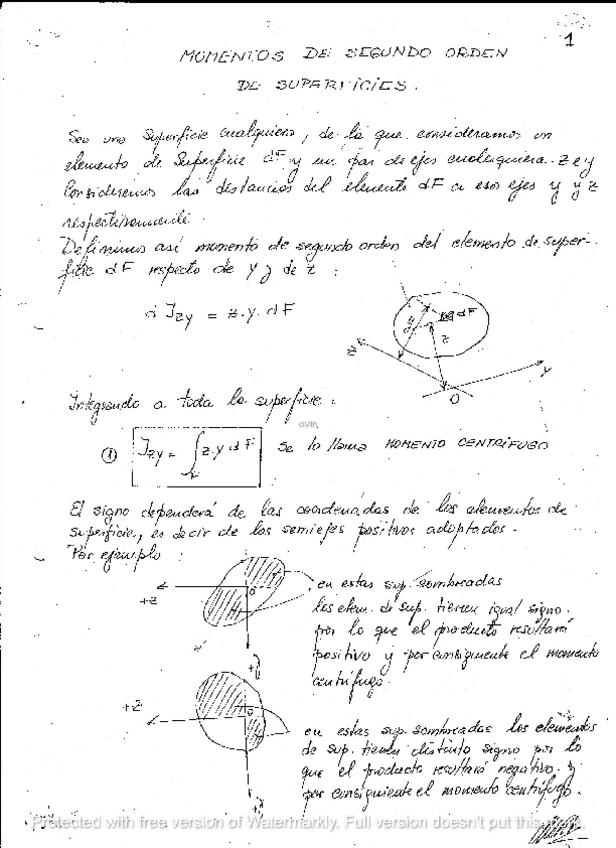 1
MOMENTOS DE SEGUNDO ORDEN
DE SUPERFICIES.
Sea una Superficie cualquiera, de la que consideramos un
elemento de Superficie dF y un par de ejes cualesquiera z e y
Consideremos las distancias del elemento dF a esos ejes y y z
respectivamente.
Definimos así momento de segundo orden del elemento de super-
ficie dF respecto de y y de z :
d Jzy = z.y.dF
dF
y
z
z
y
O
Integrando a toda la superficie:
① Jzy = ∫F z.y dF Se lo llama MOMENTO CENTRÍFUGO
El signo dependerá de las coordenadas de los elementos de
superficie, es decir de los semiejes positivos adoptados.
Por ejemplo :
+z
O
+y
en estas sup. sombreadas
los elem. de sup. tienen igual signo.
por lo que el producto resultará
positivo y por consiguiente el momento
centrífugo.
+z
O
+y
en estas sup. sombreadas los elementos
de sup. tienen distinto signo por lo
que el producto resultará negativo y
por consiguiente el momento centrífugo.
Protected with free version of Watermarkly. Full version doesn't put this mark.